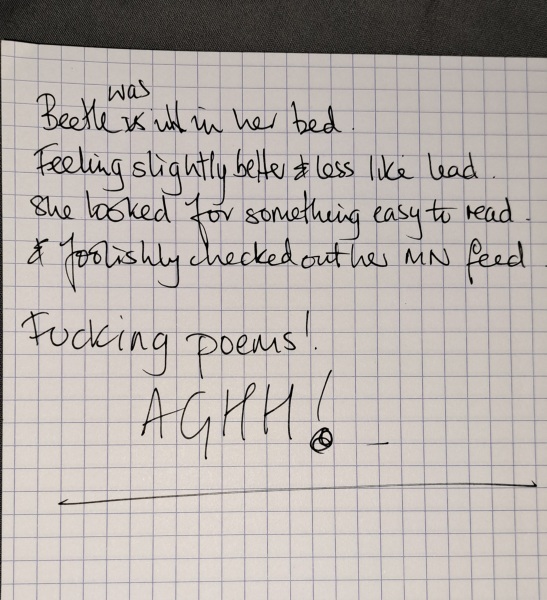 was
Beetle is ill in her bed.
Feeling slightly better & less like lead.
She looked for something easy to read.
& foolishly checked out her MN feed
Fucking poems!
AGHH!